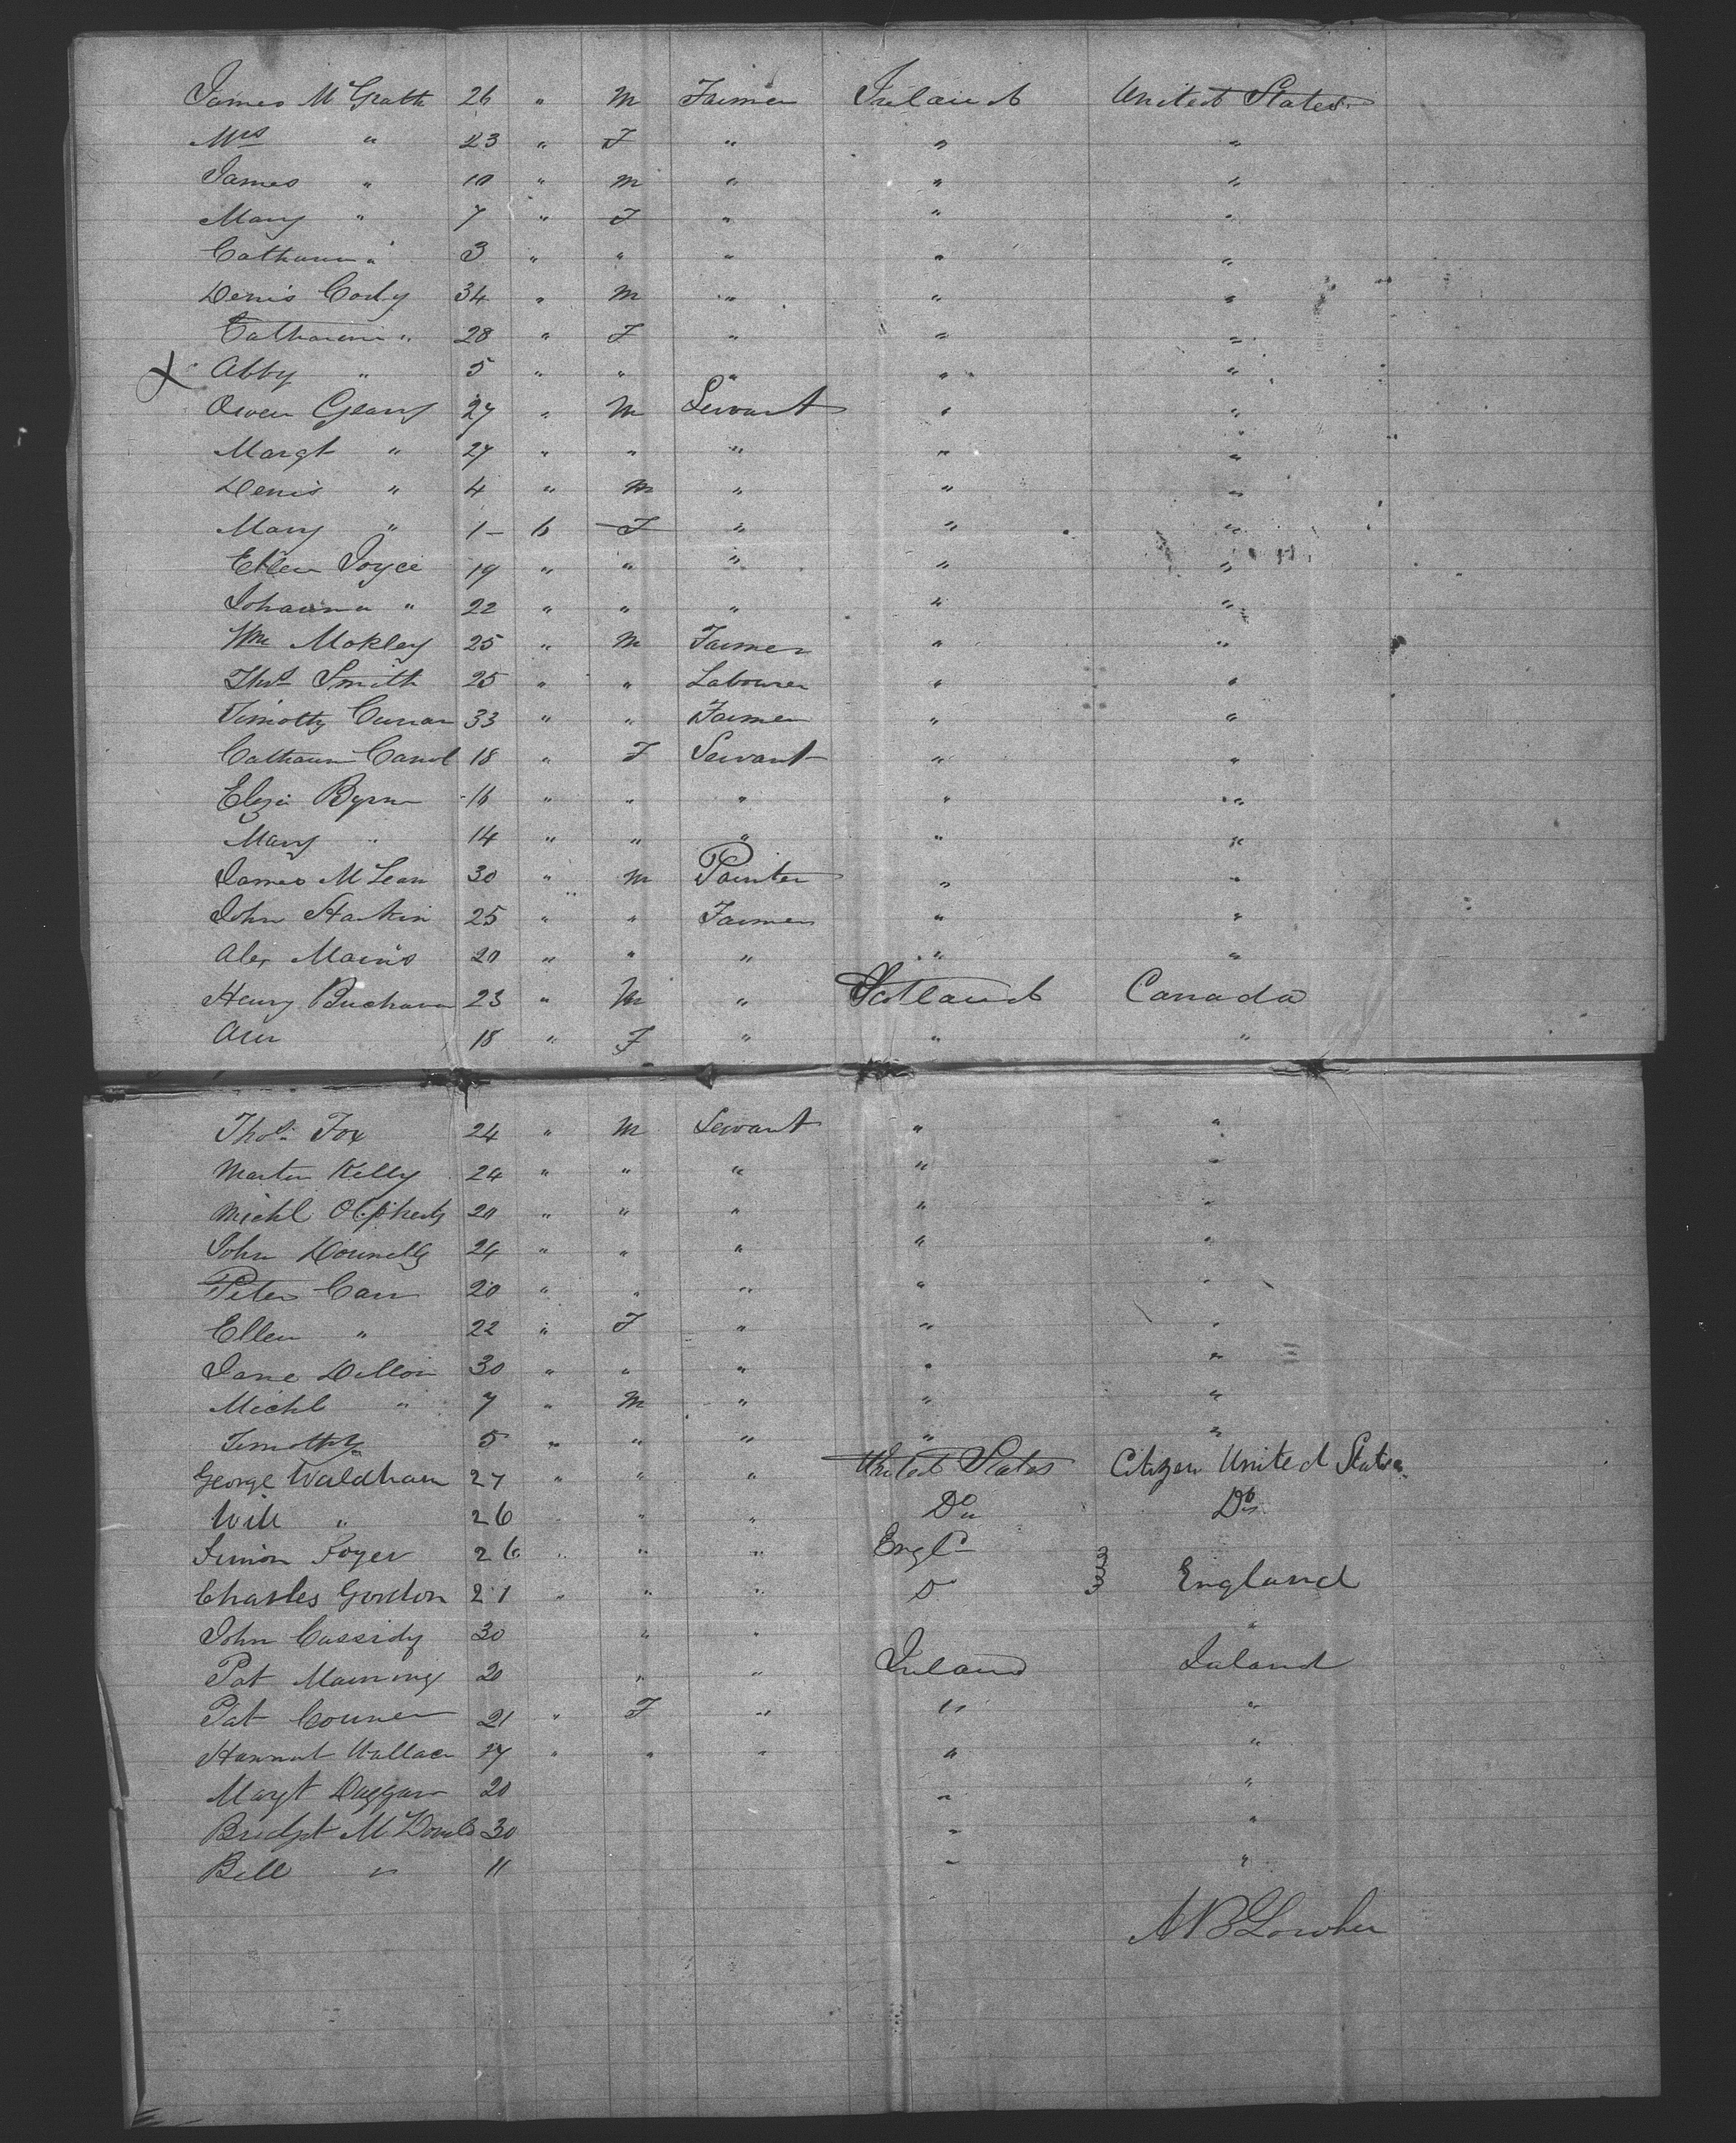 James McGrath 26 " M Farmer Ireland United States
Mrs " 23 " F " " "
James " 10 " M " " "
Mary " 7 " F " " "
Catharine " 3 " " " " "
Denis Cody 34 " M " " "
Catharine " 28 " F " " "
X Abby " 5 " " " " "
Owen Geary 27 " M Servant " "
Margt " 27 " " " " "
Denis " 4 " M " " "
Mary " 1 - 6 F " " "
Ellen Joyce 19 " " " " "
Johanna " 22 " " " " "
Wm Mokley 25 " M Farmer " "
Thos Smith 25 " " Labourer " "
Timothy Curran 33 " " Farmer " "
Catharine Carrol 18 " F Servant " "
Eliza Byrne 16 " " " " "
Mary " 14 " " " " "
James McLean 30 " M Painter " "
John Harkin 25 " " Farmer " "
Alex Mains 20 " " " " "
Henry Buchanan 23 " M " Scotland Canada
Ann 18 " F " " "
Thos Fox 24 " M Servant " "
Martin Kelly 24 " " " " "
Michl 20 " " " " "
John Donnelly 24 " " " " "
Peter Carr 20 " " " " "
Ellen " 22 " F " " "
Jane Dillon 30 " " " " "
Michl " 7 " M " " "
Timothy " 5 " " " " "
George Waldham 27 " " " United States Citizen United States
Will " 26 " " " Do Do
Simon 26 " " " Engld
Charles Gordon 21 " " " D England
John Cassidy 30 " " "
Pat Manning 20 " " Ireland Ireland
Pat Conner 21 " F " " "
Hannah Wallace 17 " " " " "
Margt Duggan 20 " "
Bridget McDonald 30 " "
Bell " 11 " "
A B Lowher